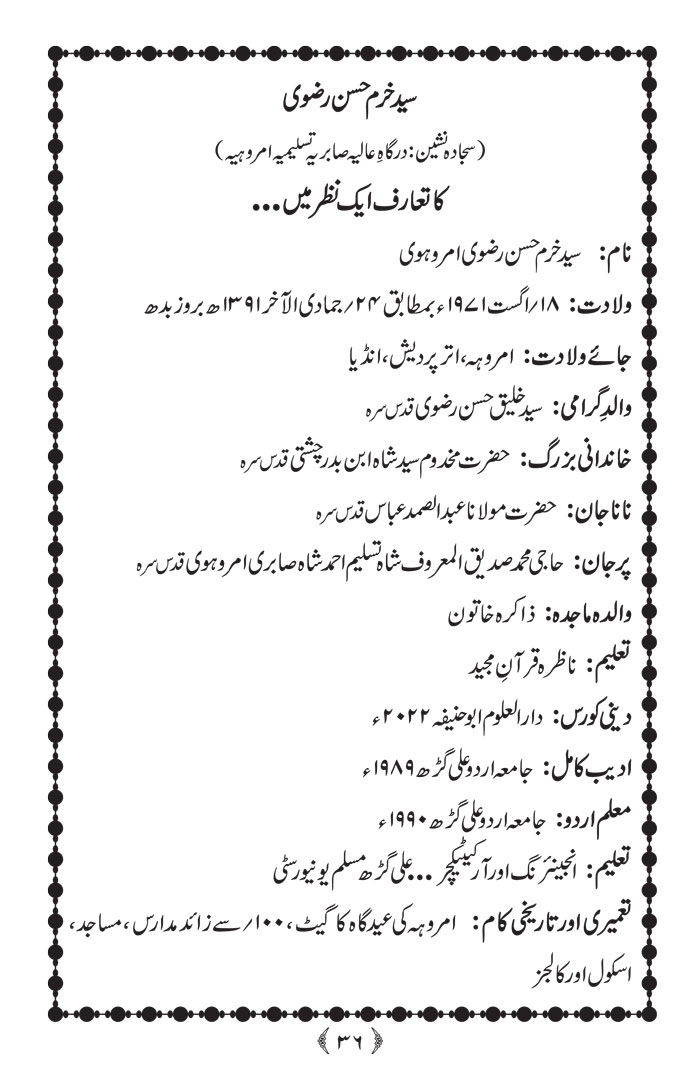 سید خرم حسن رضوی
(سجادہ نشین: درگاہِ عالیہ صابریہ تسلیمیہ امروہیہ)
کا تعارف ایک نظر میں...
نام: سید خرم حسن رضوی امروہوی
ولادت: ۱۸/اگست ۱۹۷۱ء بمطابق ۲۴/جمادی الآخر ۱۳۹۱ھ بروز بدھ
جائے ولادت: امروہہ، اتر پردیش، انڈیا
والدِ گرامی: سید خلیق حسن رضوی قدس سرہ
خاندانی بزرگ: حضرت مخدوم سید شاہ ابن بدر چشتی قدس سرہ
نانا جان: حضرت مولانا عبدالصمد عباس قدس سرہ
پر جان: حاجی محمد صدیق المعروف شاہ تسلیم احمد شاہ صابری امروہوی قدس سرہ
والدہ ماجدہ: ذاکرہ خاتون
تعلیم: ناظرہ قرآنِ مجید
دینی کورس: دارالعلوم ابو حنیفہ ۲۰۲۲ء
ادیب کامل: جامعہ اردو علی گڑھ ۱۹۸۹ء
معلم اردو: جامعہ اردو علی گڑھ ۱۹۹۰ء
تعلیم: انجینئرنگ اور آرکیٹیکچر... علی گڑھ مسلم یونیورسٹی
تعمیری اور تاریخی کام: امروہہ کی عیدگاہ کا گیٹ، ۱۰۰/سے زائد مدارس، مساجد،
اسکول اور کالجز
﴿۳۶﴾